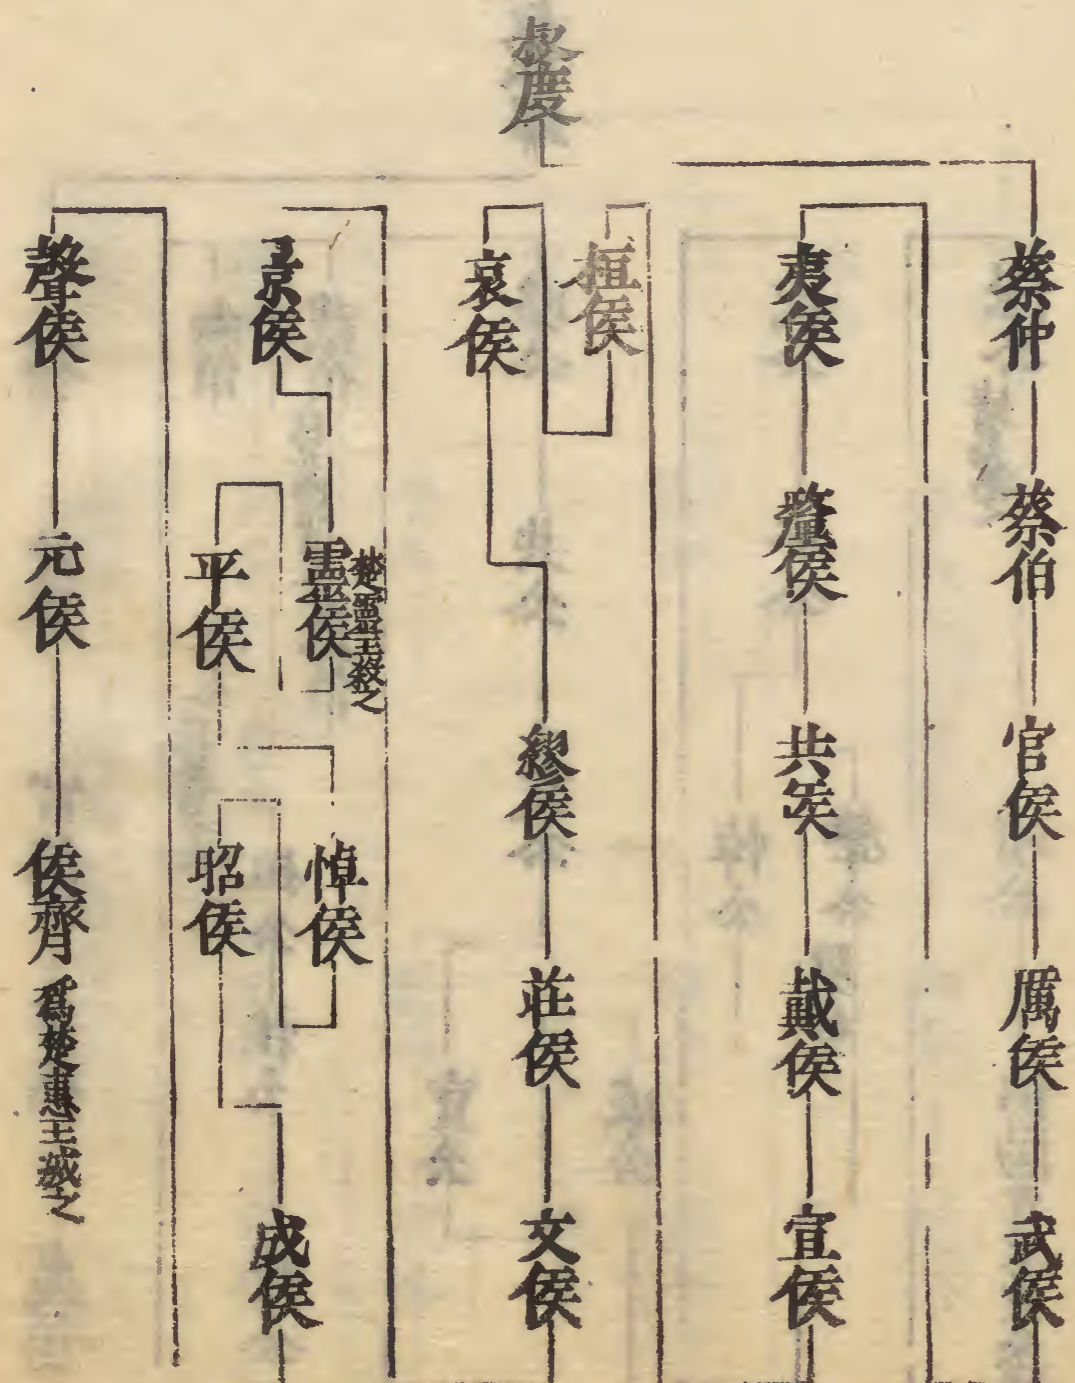 叔度
蔡仲
蔡伯
宫侯
厲侯
武侯
夷侯
釐侯
共侯
戴侯
宣侯
桓侯
哀侯
繆侯
莊侯
文侯
景侯
靈侯
楚靈王殺之
平侯
悼侯
昭侯
成侯
聲侯
元侯
侯齊
爲楚惠王滅之